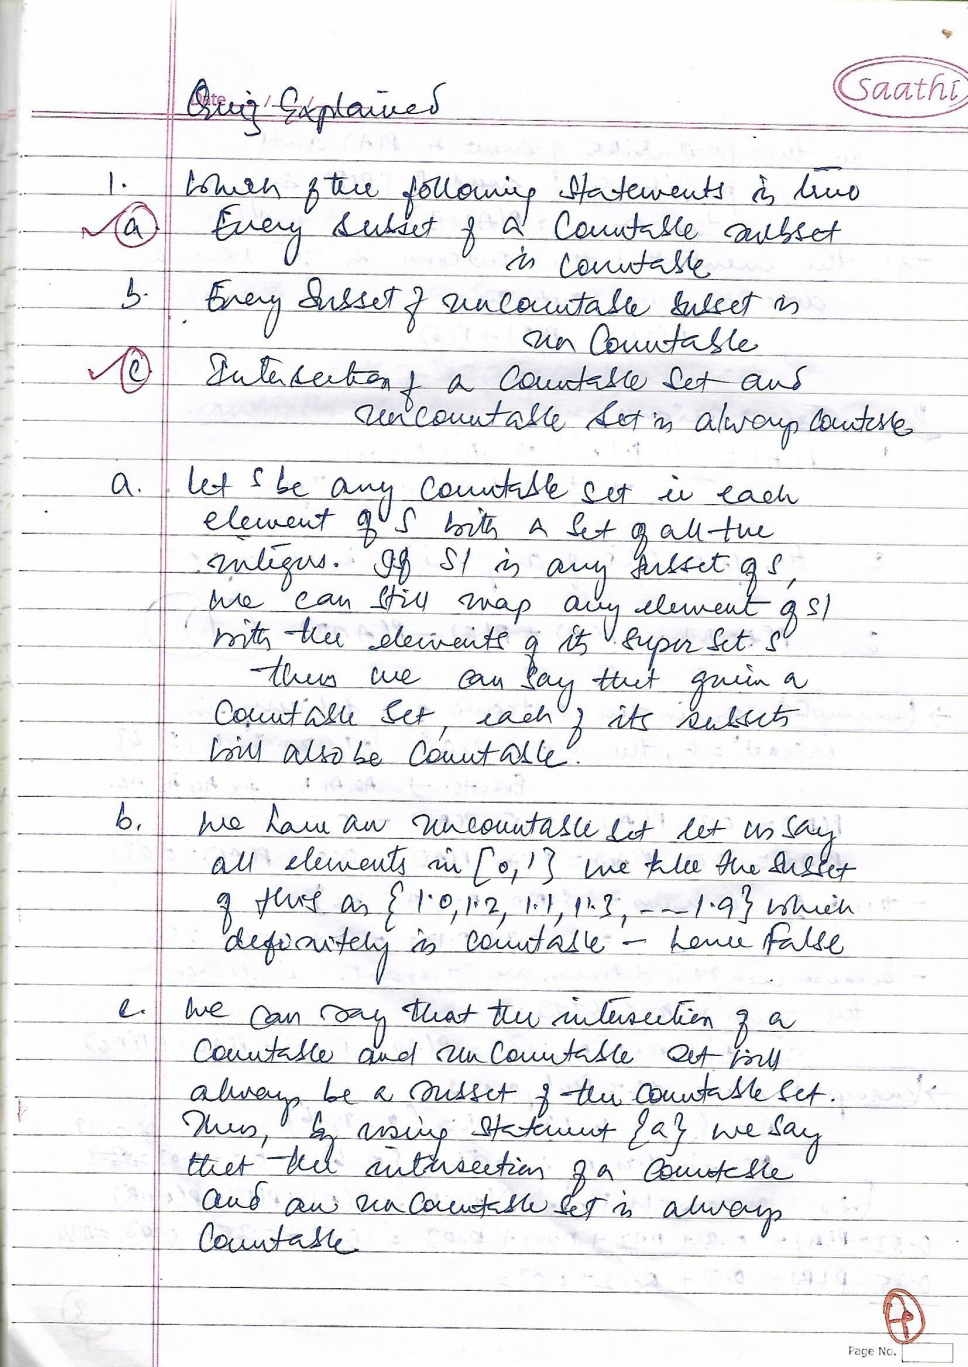 Saathi
Date / /
Quiz Explained
1. Which of the following Statements is true
a Every subset of a Countable subset
is countable
b. Every Subset of uncountable subset is
un Countable
c Intersection of a Countable Set and
uncountable Set is always countable
a. Let S be any Countable set ie each
element of S with a Set of all the
integers. If S1 is any subset of S,
we can still map any element of S1
with the elements of its super Set S
thus we can say that given a
Countable Set, each of its subsets
will also be Countable.
b. We have an uncountable set let us say
all elements in [0,1] we take the subset
of this as {1.0, 1.2, 1.1, 1.3, -- 1.9} which
definitely is countable - hence False
c. We can say that the intersection of a
Countable and un Countable set will
always be a subset of the countable set.
Thus, by using Statement {a} we say
that the intersection of a Countable
and an un Countable set is always
Countable
Page No.